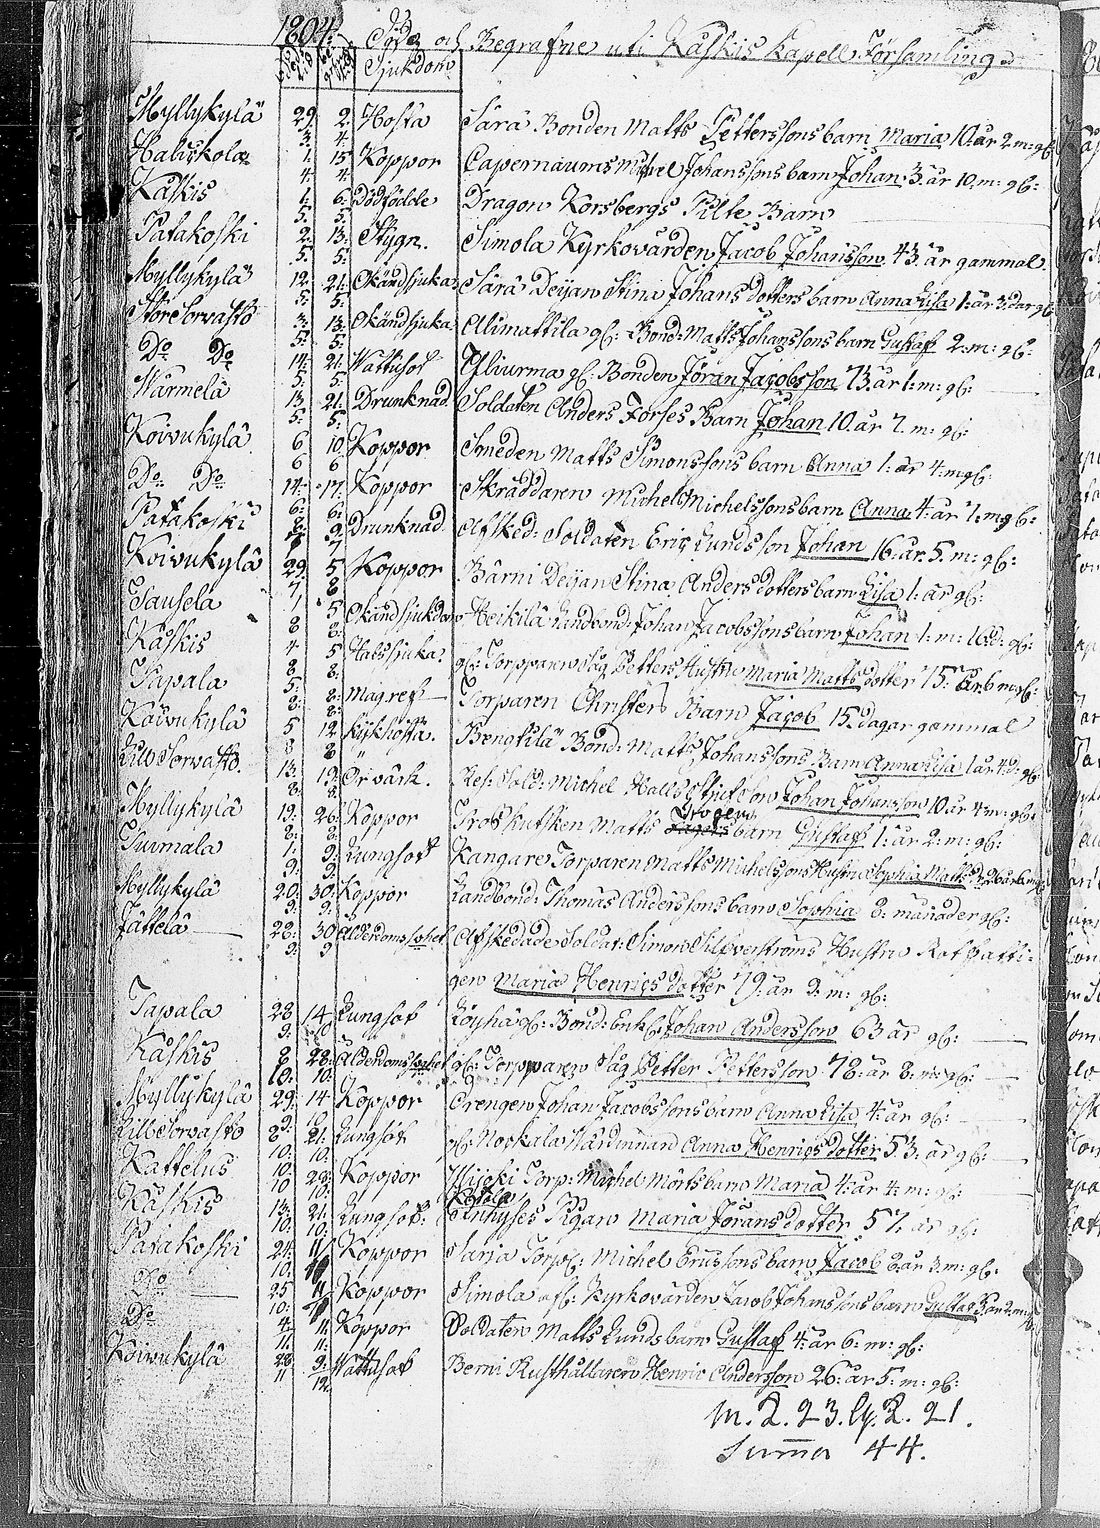 1804. Döde och Begrafne uti Kåskis Kapell Församling
Sjukdom
Myllykylä 29. 2. Hosta Särä Bonden Matts Petterssons barn Maria 10. år 2. m: gl:
3. 4.
Haliskola 1. 15 Koppor Capernaums Michel Johanssons barn Johan 3. år 10. m: gl:
4. 4.
Kåskis 1. 6. Dödfödde Dragon Korsbergs Pilte Barn
5. 5.
Patakoski 2. 13. Stygn. Simola Kyrkovärden Jacob Johansson 43. år gammal.
5. 5.
Myllykylä 12. 21. Okändsjuka Särä Deijan Stina Johans dotters barn Anna Lisa 1: år 3. dar gl
5. 5.
Stor Sorvasto 3. 13. Okändsjuka Alimattila gl: Bond: Matts Johanssons barn Gustaff 2: m: gl:
5. 5.
Do Do 14. 21. Wattusot Yliurma gl: Bonden Jöran Jacobsson 73. år 1: m: gl:
5. 5.
Wärmelä 13. 21. Drunknad. Soldaten Anders Forses Barn Johan 10. år 7. m: gl:
5. 5.
Koivukylä 6 10. Koppor Smeden Matts Simonssons barn Anna 1: år 4: m gl:
6 6
Do: Do: 14. 17. Koppor Skräddaren Michel Michelssons barn Anna 4: år 7: m: gl:
6: 6:
Patakoski 8. 9. Drunknad. Afsked: Soldaten Eric Lundsson Johan 16: år. 5. m: gl:
7
Koivukylä 29. 5 Koppor Bärni Deijan Stina Anders dotters barn Lisa 1: år gl:
7 8
Sausela 1 5 Okändsjukdom Heikilä Landbond: Johan Jacobssons barn Johan 1: m: 16. d: gl:
8 8:
Kåskis 4 5 Halssjuka. gl: Torpparen Såg Petters Hustru Maria Matts dotter 75: år. 6 m: gl:
8 8:
Tapala 5. 8: Mag. ref Torparen Christers Barn Jacob 15. dagar gammal
8: 8:
Koivukylä 5 12 Kykhosta. Benstilä Bond: Matts Johanssons Barn Anna Lisa 1 år 4: d: gl:
8 8
Lill Sorvasto. 13. 19. Örvärk. Res: Sold: Michel Halls Styfson Johan Johansson 10. år 4: m: gl:
8: 8.
Myllykylä 19. 26. Koppor Tros kusken Matts Drogens barn Gustaff 1: år 2: m: gl:
8: 8
Tuimala 1: 9: Lungsot Kangare Torparen Matts Michelssons Hustru Sophia Matts D: 26 år 6: m: gl
9: 9:
Myllykylä 20. 30. Koppor Landbond: Thomas Anderssons barn Sophia 8: månader gl:
9: 9:
Jättelä 28: 30. Ålderdoms svaghet Afskedade Soldat: Simon Silfverströms Hustru Rotfatti-
9: 9
gen Maria Henrics dotter 79: år 9: m: gl:
Tapala 28 14 Lungsot Löyhä gl: Bond: Enkl: Johan Andersson 63 år gl:
9: 10
Kåskis 8 28: Ålderdoms svaghet gl: Torpparen Såg Petter Pettersson 78: år 8: m: gl:
10: 10:
Myllykylä 29: 14 Koppor Drengen Johan Jacobssons barn Anna Lisa 4: år gl:
9: 10
Lill Sorvasto 8 21. Lungsot gl: Nockala Wärdinnan Anna Henrics dotter 53: år gl:
10. 10.
Kattelus 10. 28: Koppor Hijoki Torp: Michel Mörts barn Maria 4: år 4: m: gl:
10 10:
Kåskis 13. 21. Lungsot: Kotola Inhyses Pigan Maria Jörans dotter 57: år gl:
10. 10.
Patakoski 24. 11 Koppor Sarja Torp: Michel Ericssons barn Jacob 2: år 3: m: gl:
10.
Do 25 11 Koppor Simola afl: Kyrkovärden Jacob Johanssons barn Gustaf 5 år 2: m: gl
10.
Do 4. 11. Koppor Soldaten Matts Lunds barn Gustaff 4: år 6: m: gl:
11. 11:
Koivukylä 28 9: Wattusot Berni Rusthållaren Henric Andersson 26: år 5: m: gl:
11 12
M. K. 23. Q. K. 21.
Summa 44.